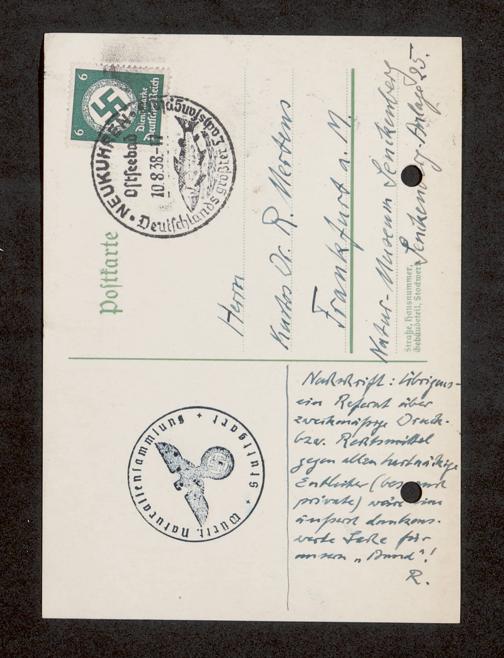 Postkarte
6
6
Dienstmarke
Deutsches Reich
NEUKUHREN
Ostseebad
10.8.38
Deutschlands größter Lachsfangplatz
Herrn
Kustos Dr. R. Mertens
Frankfurt a. M.
Natur-Museum Senckenberg
Senckenberg-Anlage 25.
Straße, Hausnummer,
Gebäudeteil, Stockwerk
Württ. Naturaliensammlung + Stuttgart +
Nachschrift: Übrigens
ein Referat über
zweckmässige Druck-
bzw. Rechtsmittel
gegen allen hartnäckige
Entleiher (besonders
private) wäre eine
äußerst dankens-
werte Sache für
unsern „Bund"!
R.